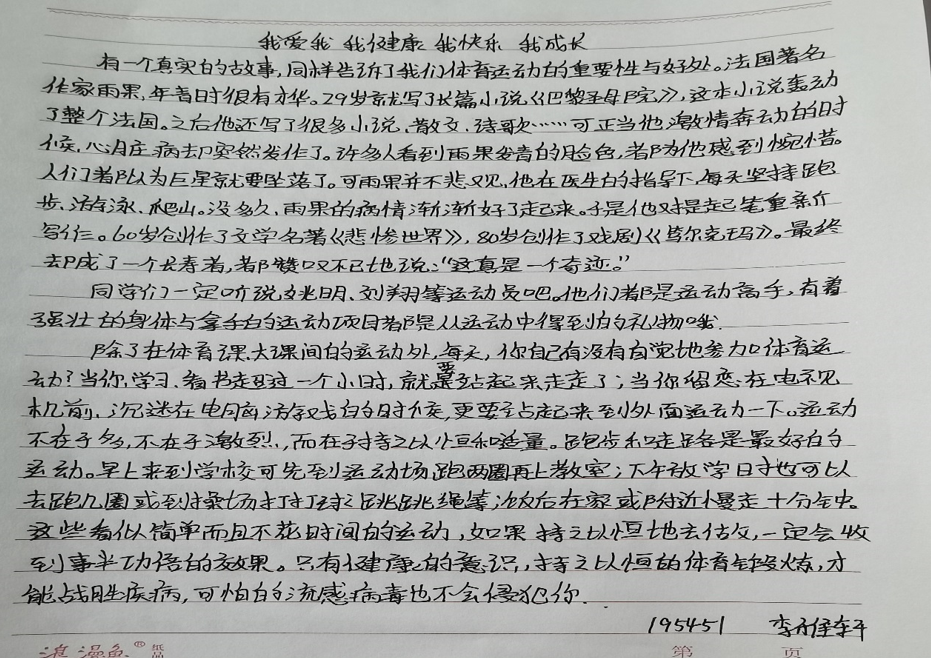 我爱我 我健康 我快乐 我成长
有一个真实的故事,同样告诉了我们体育运动的重要性与好处。法国著名
作家雨果,年青时很有才华。29岁就写了长篇小说《巴黎圣母院》,这本小说轰动
了整个法国。之后他还写了很多小说、散文、诗歌……可正当他激情奔动的的时
候,心脏病却突然发作了。许多人看到雨果发青的脸色,都为他感到惋惜。
人们都认为巨星就要坠落了。可雨果并不悲观,他在医生的指导下,每天坚持跑
步、游泳、爬山。没多久,雨果的病情渐渐好了起来。于是他又拾起笔重新介
写作。60岁创作了文学名著《悲惨世界》,80岁创作了戏剧《笃尔克玛》。最终
却成了一个长寿者,都赞叹不已地说:“这真是一个奇迹。”
同学们一定听说姚明、刘翔等运动员吧。他们都是运动高手,有着
强壮的身体与拿手的运动项目都是从运动中得到的礼物哦.
除了在体育课、大课间的运动外,每天,你自己有没有自觉地参加体育运
动?当你学习、看书走超过一个小时,就要站起来走走了;当你留恋在电视
机前、沉迷在电脑游戏的时候,更要站起来到外面运动一下。运动
不在于多,不在于激烈,而在于持之以恒和适量。跑步和走路是最好的
运动。早上来到学校可先到运动场跑两圈再上教室;下午放学时也可以
去跑几圈或到操场打打球、跳跳绳等;饭后在家或附近慢走十分钟。
这些看似简单而且不花时间的运动,如果持之以恒地去估攵,一定会收
到事半功倍的效果。只有健康的意识,持之以恒的体育锻炼,才
能战胜疾病,可怕的流感病毒也不会侵犯你.
195451 李
浪漫鱼® 纸品 第 页